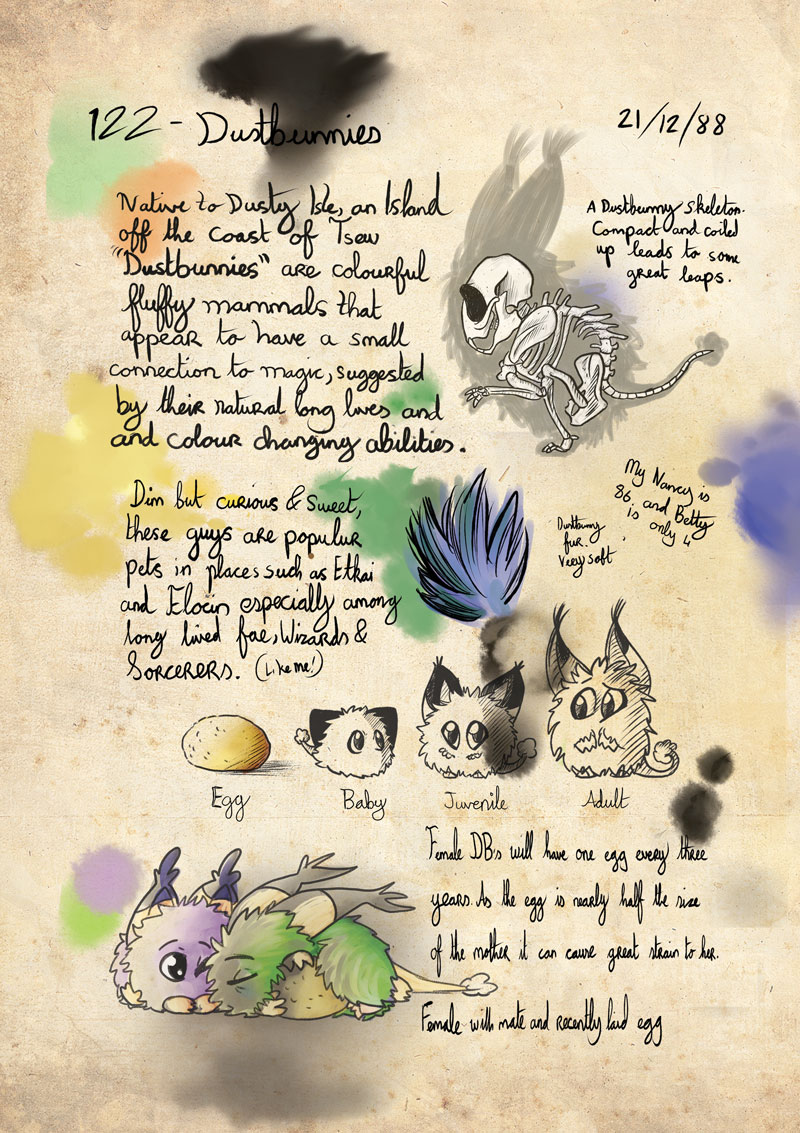 122 - Dustbunnies
21/12/88
Native to Dusty Isle, an Island
off the coast of Tsew
"Dustbunnies" are colourful
fluffy mammals that
appear to have a small
connection to magic, suggested
by their natural long lives and
and colour changing abilities.
A Dustbunny Skeleton.
Compact and coiled
up leads to some
great leaps.
Dim but curious & sweet,
these guys are populur
pets in places such as Etkai
and Elocin especially among
long lived fae, Wizards &
Sorcerers. (Like me!)
Dustbunny
fur.
Very soft
My Nancy is
86 and Betty
is only 4
Egg
Baby
Juvenile
Adult
Female DB's will have one egg every three
years. As the egg is nearly half the size
of the mother it can cause great strain to her.
Female with mate and recently laid egg